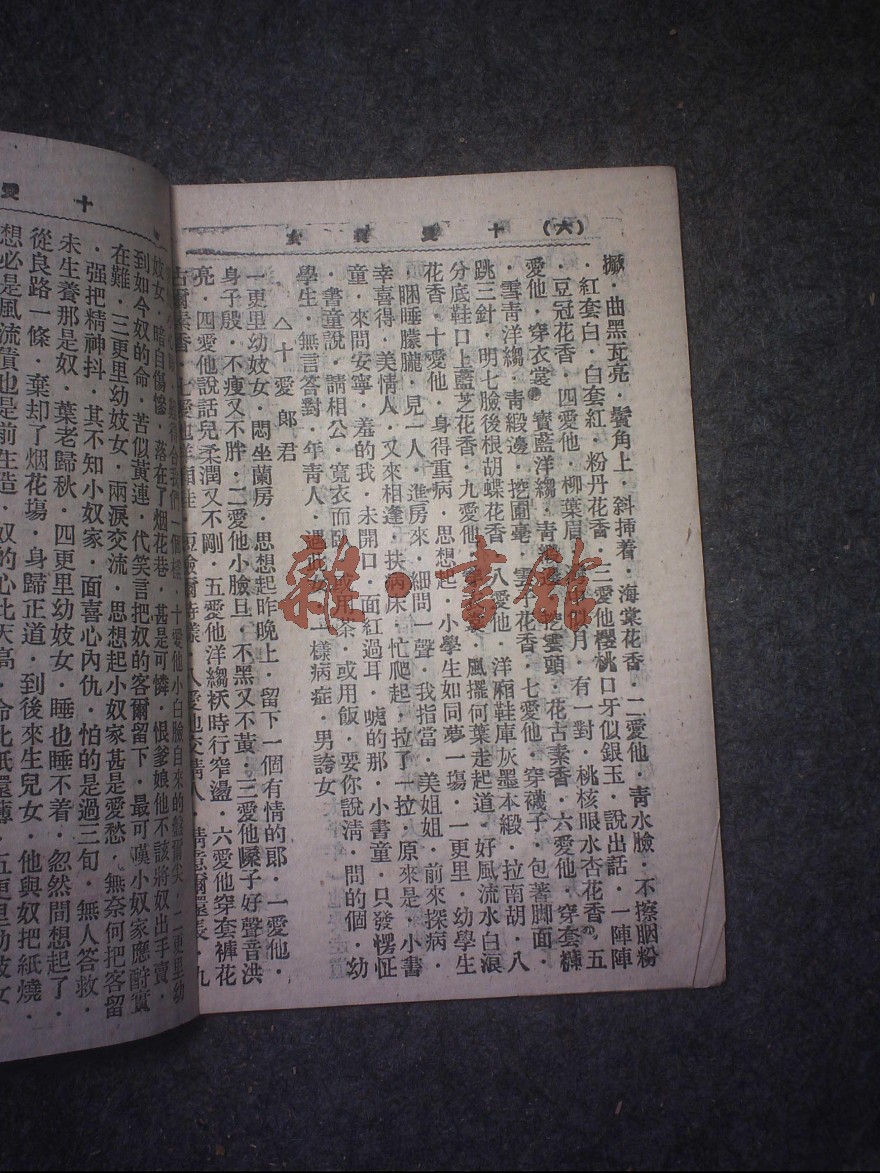 (六) 十愛
攧．曲黑瓦亮．鬢角上．斜挿着．海棠花香．二愛他．靑水臉．不擦胭粉
．紅套白．白套紅．粉丹花香．三愛他櫻桃口牙似銀玉．說出話．一陣陣
．豆冠花香．四愛他．柳葉眉．月．有一對．桃核眼水杏花香．五
愛他．穿衣裳．寶藍洋縐．靑雲頭．花古素香．六愛他．穿套褲
．雲靑洋縐．靑緞邊．挖圍毫．雲子花香．七愛他．穿襪子．包著脚面．
跳三針．明七臉後根胡蝶花香．八愛他．洋廂鞋庫灰墨本緞．拉南胡．八
分底鞋口上藍芝花香．九愛他．風擺何葉走起道．好風流水白浪
花香．十愛他．身得重病．思想起．小學生如同夢一塲．一更里．幼學生
．睏睡朦朧．見一人．進房來．細問一聲．我指當．美姐姐．前來探病．
幸喜得．美情人．又來相逢．扶病床．忙爬起．拉了一拉．原來是．小書
童．來問安寧．羞的我．未開口．面紅過耳．唬的那．小書童．只發愣怔
．書童說．請相公．寬衣而臥．或用茶．或用飯．要你說清．問的個．幼
學生．無言答對．年靑人．遇此女．一樣病症．男誇女
△十愛郎君
一更里幼妓女．悶坐蘭房．思想起昨晚上．留下一個有情的郎．一愛他．
身子殷．不瘦又不胖．二愛他小臉旦．不黑又不黃．三愛他嗓子好聲音洪
亮．四愛他說話兒柔潤又不剛．五愛他洋縐袄時行窄盪．六愛他穿套褲花
古爾素香．
十愛
十愛他小白臉自來的
妓女．暗自傷慘．落在了烟花巷．甚是可憐．恨爹娘他不該將奴出手賣．
到如今奴的命．苦似黃連．代笑言把奴的客爾留下．最可嘆小奴家應酧實
在難．三更里幼妓女．兩淚交流．思想起小奴家甚是愛愁．無奈何把客留
．强把精神抖．其不知小奴家．面喜心內仇．怕的是過三旬．無人答救．
未生養那是奴．葉老歸秋．四更里幼妓女．睡也睡不着．忽然間想起了．
從良路一條．棄却了烟花塲．身歸正道．到後來生兒女．他與奴把紙燒．
想必是風流債也是前生造．奴的心比天高．命比紙還薄．五更里幼妓女
雜·書館